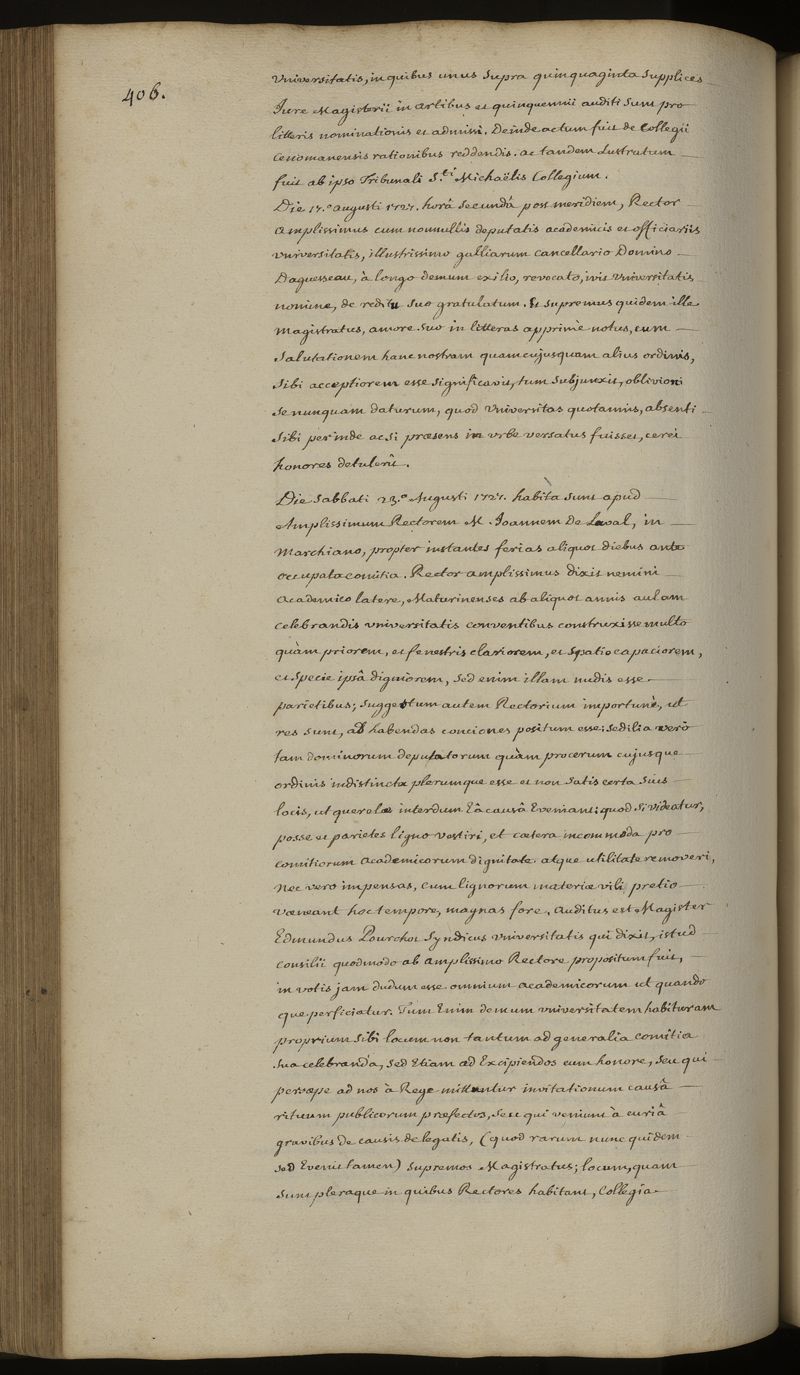 406.
Universitatis, in quibus unus supra quinquaginta supplices
Jure Magisterii in artibus et quinquennii auditi sunt pro
litteris nominationis et admissi. Deinde actum fuit de Collegii
Cenomanensis rationibus reddendis. ac tandem Lustratum
fuit ab ipso Tribunali S.ti Michaëlis Collegium.
Die 17.a augusti 1727. horâ secundâ post meridiem, Rector
amplissimus cum nonnullis deputatis academicis et officiariis
Universitatis, illustrissimo galliarum cancellario Domino
Daguesseau, à longo demum exilio, revocato, ivit Universitatis
nomine, de reditu suo gratulatum. Et supremus quidem ille
Magistratus, amore suo in litteras apprimè notus, cum
salutationem hanc nostram quam cujusquam alius ordinis,
sibi acceptiorem esse significavit, tum subjunxit, oblivioni
se nunquam daturum, quod Universitas quotannis, absenti
sibi perinde ac si præsens in urbe versatus fuisset, cerei
honores detulerit.
Die Sabbati 23.a Augusti 1727. habita sunt apud
Amplissimum Rectorem M. Joannem De Laval, in
Marchiano, propter instantes ferias aliquot diebus ante
occupata comitia. Rector amplissimus dixit nemini
academico latere, Maturinenses ab aliquot annis aulam
celebrandis universitatis conventibus construxisse multo
quàm priorem, et fenestris clariorem, et spatio capaciorem,
et specie ipsâ digniorem, sed enim illam nudis esse
parietibus; suggestum autem Rectorium importunè, ut
res sunt, ad habendas conciones positum esse; sedilia verò
tam dominorum deputatorum quàm procerum cujusque
ordinis indistincta plerumque esse et non satis certa suis
locis, ut querelæ interdum Eâ causâ Eveniant; quod si videatur,
posse et parietes ligno vestiri, et cætera incommoda pro
comitiorum academicorum dignitate atque utilitate removeri,
nec vero impensas, cum lignorum materiæ vili pretio
væneant hoc tempore, magnas fore. Auditus est Magister
Edmundus Pourchot Syndicus Universitatis qui dixit, istud
consilii quodmodo ab amplissimo Rectore propositum fuit,
in votis jam dudum esse omnium academicorum ut quando
que perficiatur. Tum Enim demum universitatem habituram
proprium sibi locum non tantum ad generalia comitia
sua celebranda, sed Etiam ad Excipiendos cum honore, seu qui
persæpe ad nos à Rege mittuntur invitationum causâ
rituum publicorum præfectos, seu qui veniunt à curiâ
gravibus de causis delegatis, (quod rarum nunc quidem
sed Evenit tamen) supremos Magistratus; locum, quam
sunt pleraque in quibus Rectores habitant, Collegia